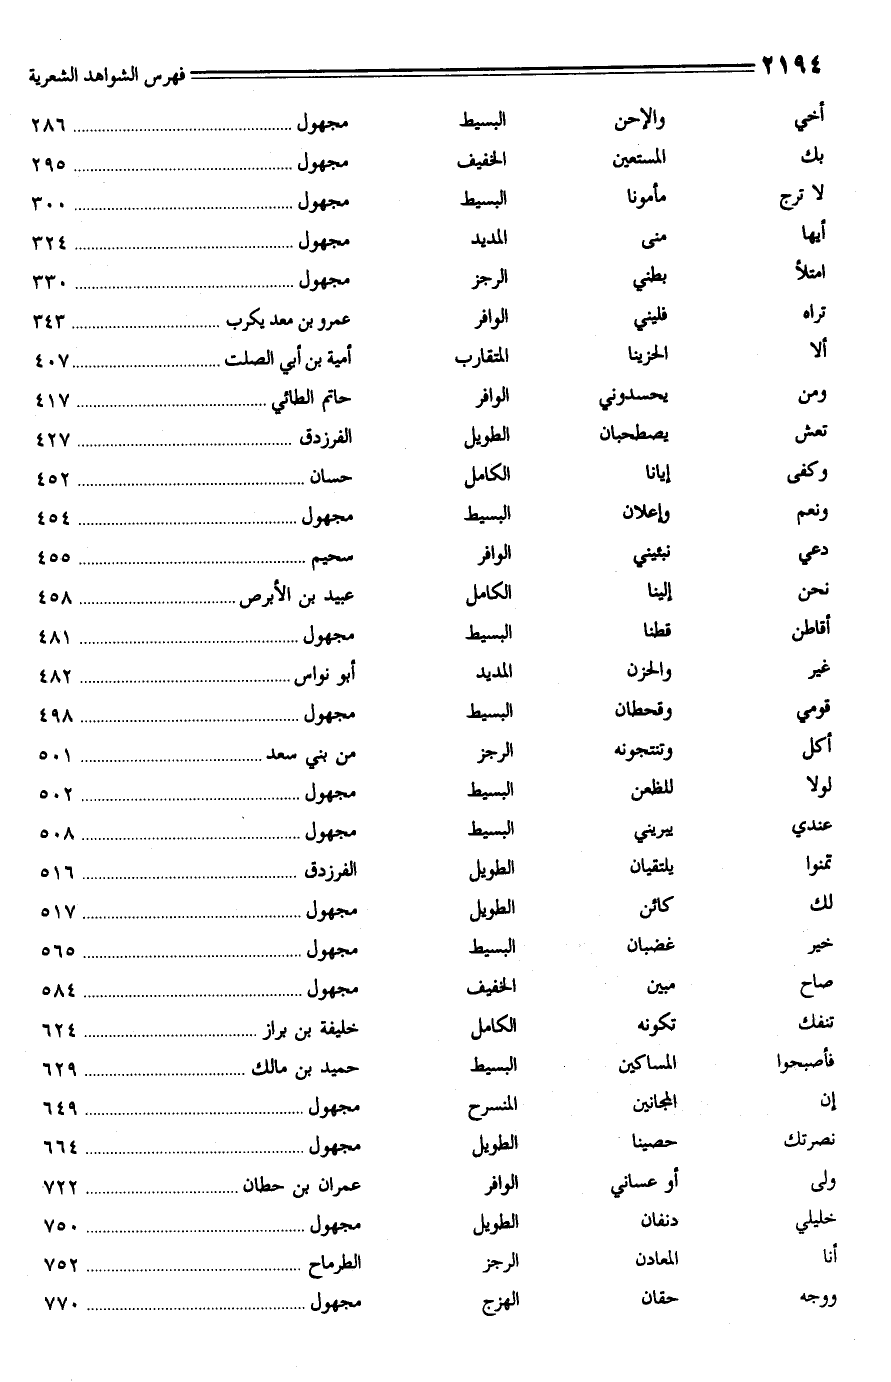 ٢١٩٤ فهرس الشواهد الشعرية
أخي والإحن البسيط مجهول ٢٨٦
بك المستعين الخفيف مجهول ٢٩٥
لا ترج مأمونا البسيط مجهول ٣٠٠
أيها منى المديد مجهول ٣٢٤
امتلأ بطني الرجز مجهول ٣٣٠
تراه فليني الوافر عمرو بن معد يكرب ٣٤٣
ألا الحزينا المتقارب أمية بن أبي الصلت ٤٠٧
ومن يحسدوني الوافر حاتم الطائي ٤١٧
تعش يصطحبان الطويل الفرزدق ٤٢٧
وكفى إيانا الكامل حسان ٤٥٢
ونعم وإعلان البسيط مجهول ٤٥٤
دعي نبئيني الوافر سحيم ٤٥٥
نحن إلينا الكامل عبيد بن الأبرص ٤٥٨
أقاطن قطنا البسيط مجهول ٤٨١
غير والحزن المديد أبو نواس ٤٨٢
قومي وقحطان البسيط مجهول ٤٩٨
أكل وتنتجونه الرجز من بني سعد ٥٠١
لولا للظعن البسيط مجهول ٥٠٢
عندي يبريني البسيط مجهول ٥٠٨
تمنوا يلتقيان الطويل الفرزدق ٥١٦
لك كائن الطويل مجهول ٥١٧
خير غضبان البسيط مجهول ٥٦٥
صاح مبين الخفيف مجهول ٥٨٤
تنفك تكونه الكامل خليفة بن براز ٦٢٤
فأصبحوا المساكين البسيط حميد بن مالك ٦٢٩
إن المجانين المنسرح مجهول ٦٤٩
نصرتك حصينا الطويل مجهول ٦٦٤
ولى أو عساني الوافر عمران بن حطان ٧٢٢
خليلي دنفان الطويل مجهول ٧٥٠
أنا المعادن الرجز الطرماح ٧٥٢
ووجه حقان الهزج مجهول ٧٧٠